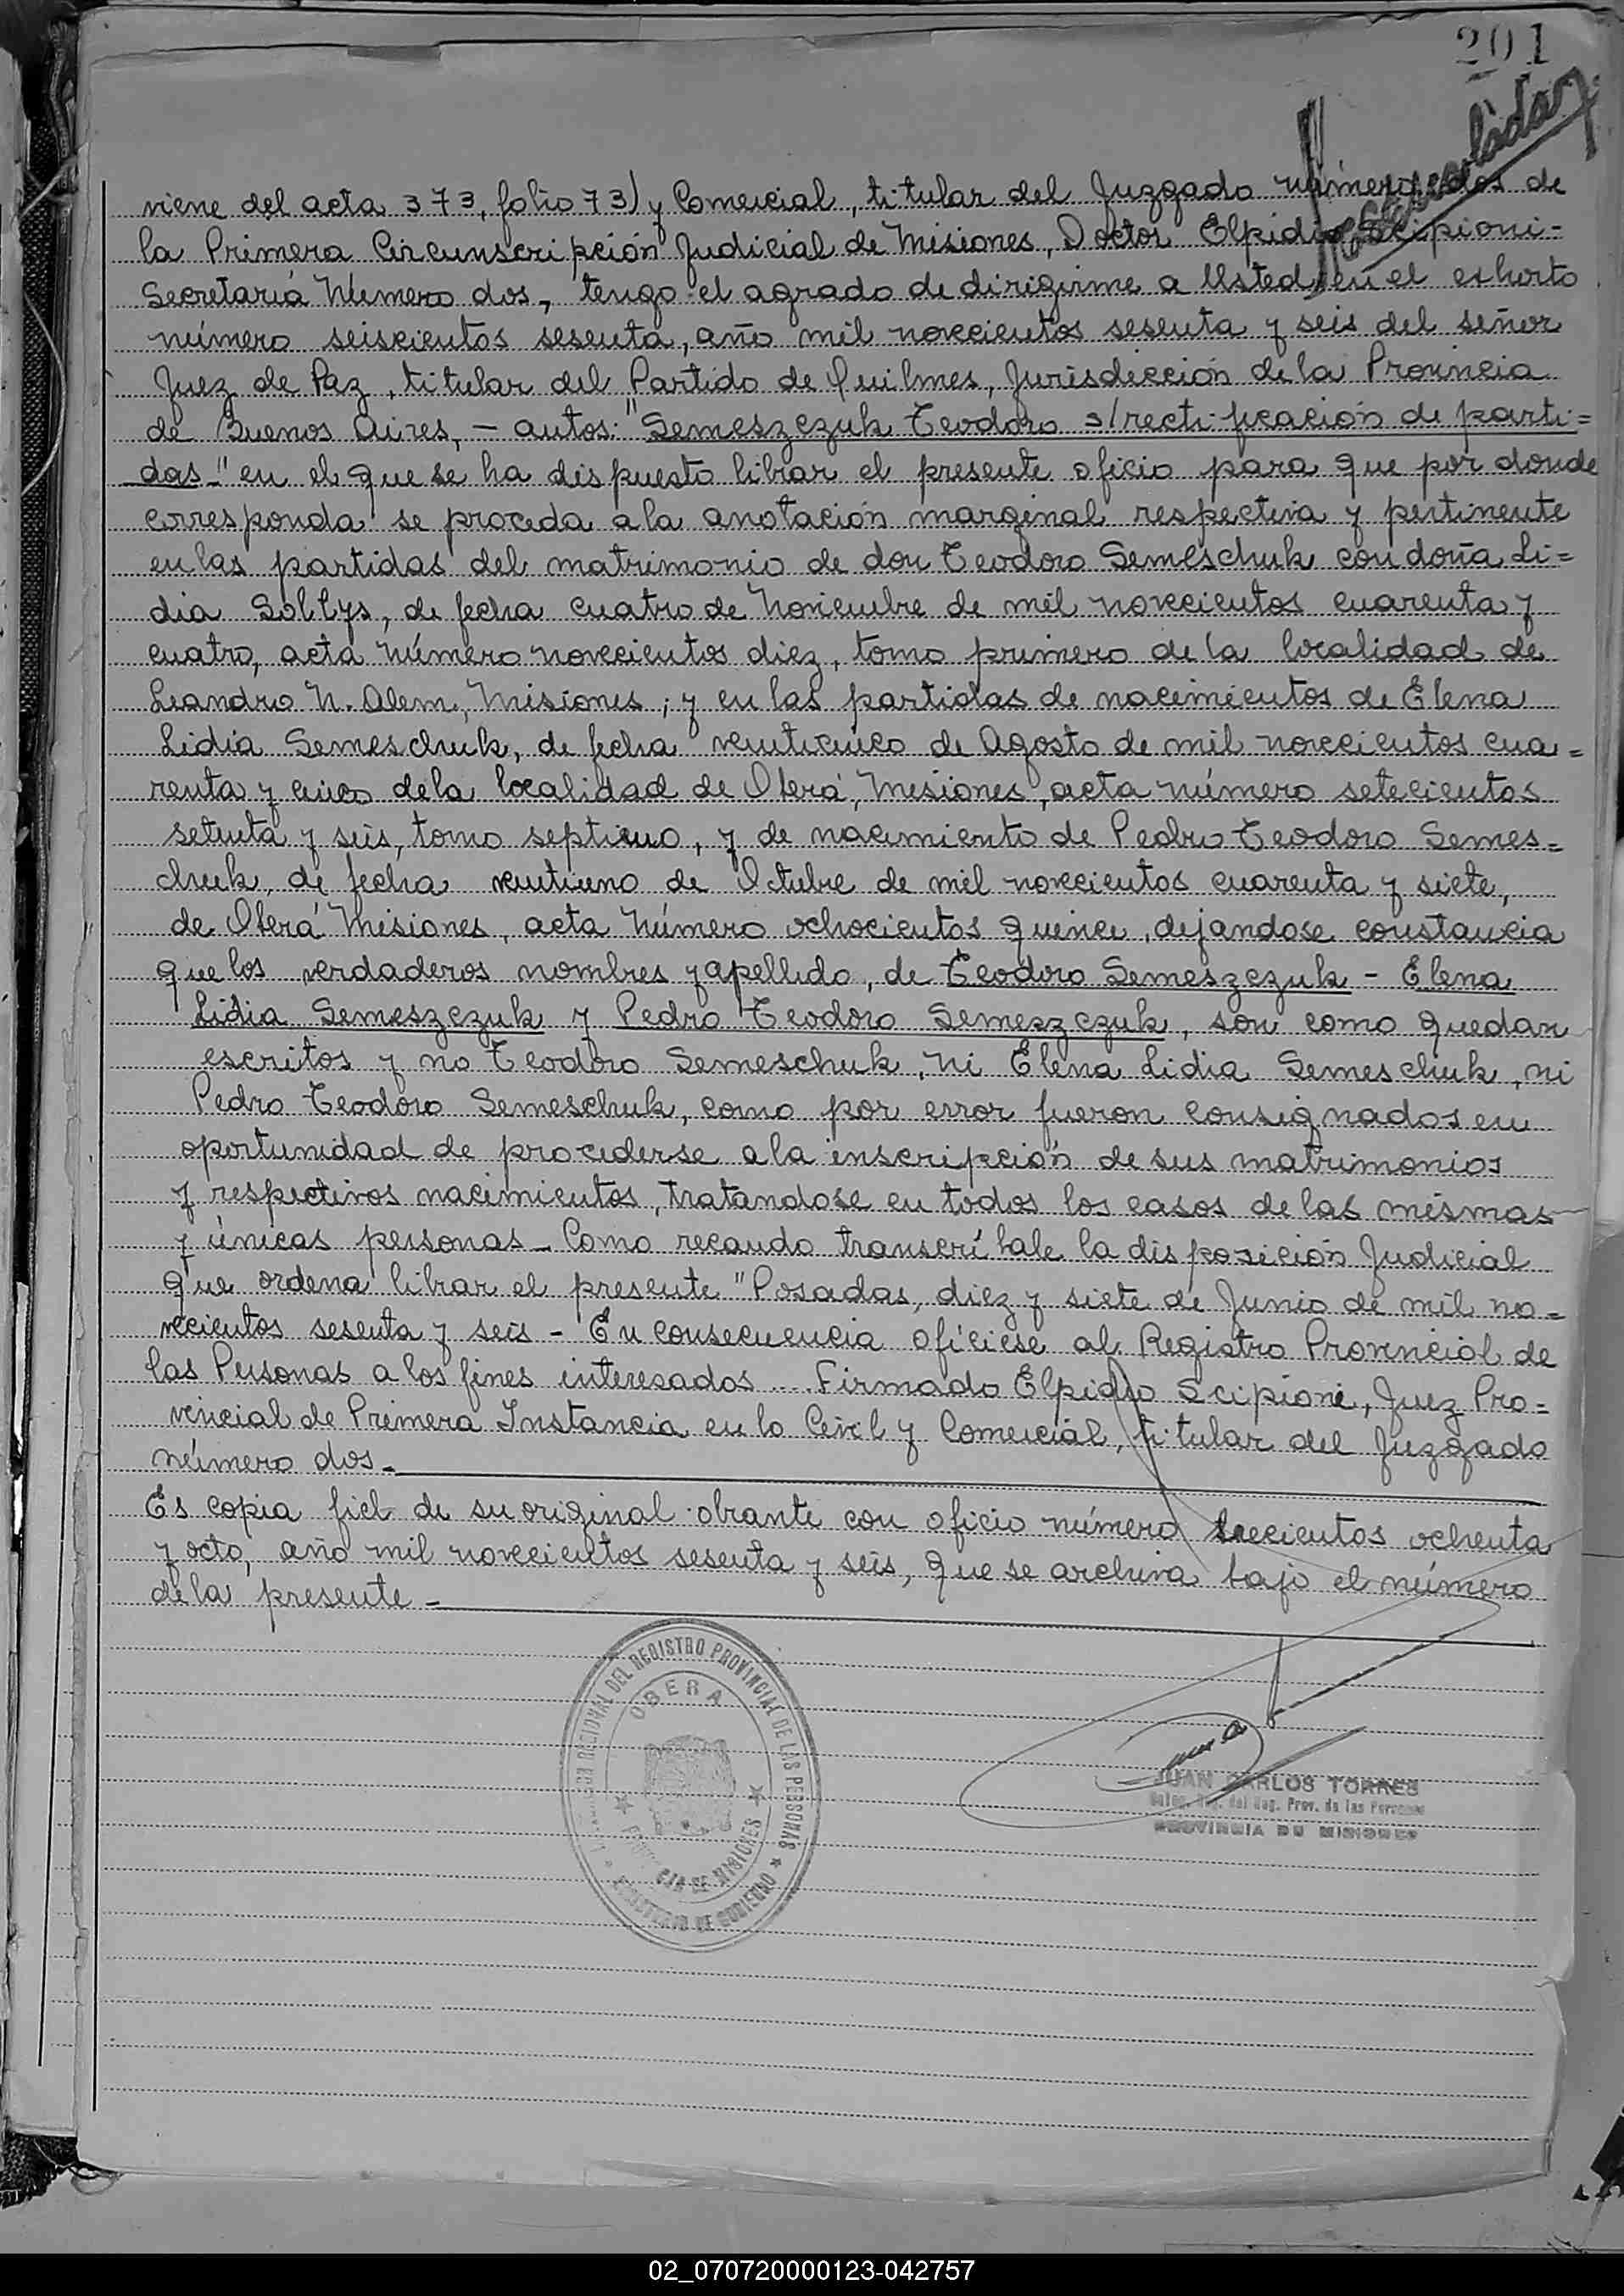 201
viene del acta 373, folio 73) y Comercial, titular del Juzgado número dos de
la Primera Circunscripción Judicial de Misiones, Doctor Elpidio Scipioni-
Secretaría Número dos, tengo el agrado de dirigirme a Usted en el exhorto
número seiscientos sesenta, año mil novecientos sesenta y seis del señor
Juez de Paz, titular del Partido de Quilmes, Jurisdicción de la Provincia
de Buenos Aires, - autos: "Semeszczuk Teodoro s/rectificación de parti=
das_" en el que se ha dispuesto librar el presente oficio para que por donde
corresponda se proceda a la anotación marginal respectiva y pertinente
en las partidas del matrimonio de don Teodoro Semeschuk con doña Li=
dia Soltys, de fecha cuatro de Noviembre de mil novecientos cuarenta y
cuatro, acta número novecientos diez, tomo primero de la localidad de
Leandro N. Alem, Misiones; y en las partidas de nacimientos de Elena
Lidia Semeschuk, de fecha veinticinco de Agosto de mil novecientos cua=
renta y cinco de la localidad de Oberá, Misiones, acta número setecientos
setenta y seis, tomo septimo, y de nacimiento de Pedro Teodoro Semes=
chuk, de fecha veintiuno de Octubre de mil novecientos cuarenta y siete,
de Oberá Misiones, acta Número ochocientos quince, dejandose constancia
que los verdaderos nombres y apellido, de Teodoro Semeszczuk - Elena
Lidia Semeszczuk y Pedro Teodoro Semeszczuk, son como quedan
escritos y no Teodoro Semeschuk, ni Elena Lidia Semeschuk, ni
Pedro Teodoro Semeschuk, como por error fueron consignados en
oportunidad de procederse a la inscripción de sus matrimonios
y respectivos nacimientos, tratandose en todos los casos de las mismas
y únicas personas_ Como recaudo transcríbale la disposición Judicial
que ordena librar el presente "Posadas, diez y siete de Junio de mil no=
vecientos sesenta y seis - En consecuencia ofíciese al Registro Provincial de
las Personas a los fines interesados ... Firmado Elpidio Scipioni, Juez Pro=
vincial de Primera Instancia en lo Civil y Comercial, titular del Juzgado
número dos_
Es copia fiel de su original obrante con oficio número trecientos ochenta
y octo, año mil novecientos sesenta y seis, que se archiva bajo el número
de la presente_
REGIONAL DEL REGISTRO PROVINCIAL DE LAS PERSONAS
OBERA
DE MISIONES
DE GOBIERNO
JUAN CARLOS TORRES
Reg. Prov. de las Personas
PROVINCIA DE MISIONES
02_070720000123-042757